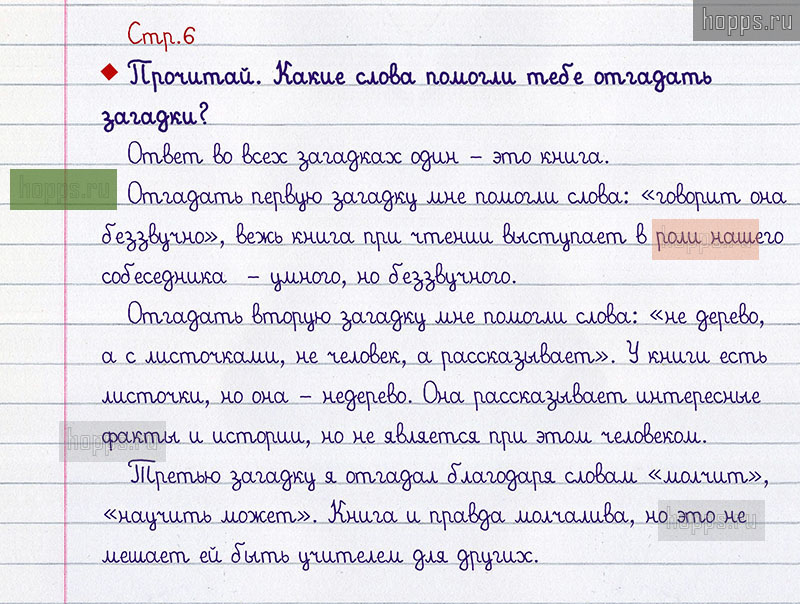 hopps.ru
Стр.6
Прочитай. Какие слова помогли тебе отгадать
загадки?
Ответ во всех загадках один – это книга.
hopps.ru
Отгадать первую загадку мне помогли слова: «говорит она
беззвучно», вежь книга при чтении выступает в роли нашего
собеседника – умного, но беззвучного.
Отгадать вторую загадку мне помогли слова: «не дерево,
а с листочками, не человек, а рассказывает». У книги есть
листочки, но она – недерево. Она рассказывает интересные
факты и истории, но не является при этом человеком.
hopps.ru
Третью загадку я отгадал благодаря словам «молчит»,
«научить может». Книга и правда молчалива, но это не
hopps.ru
мешает ей быть учителем для других.